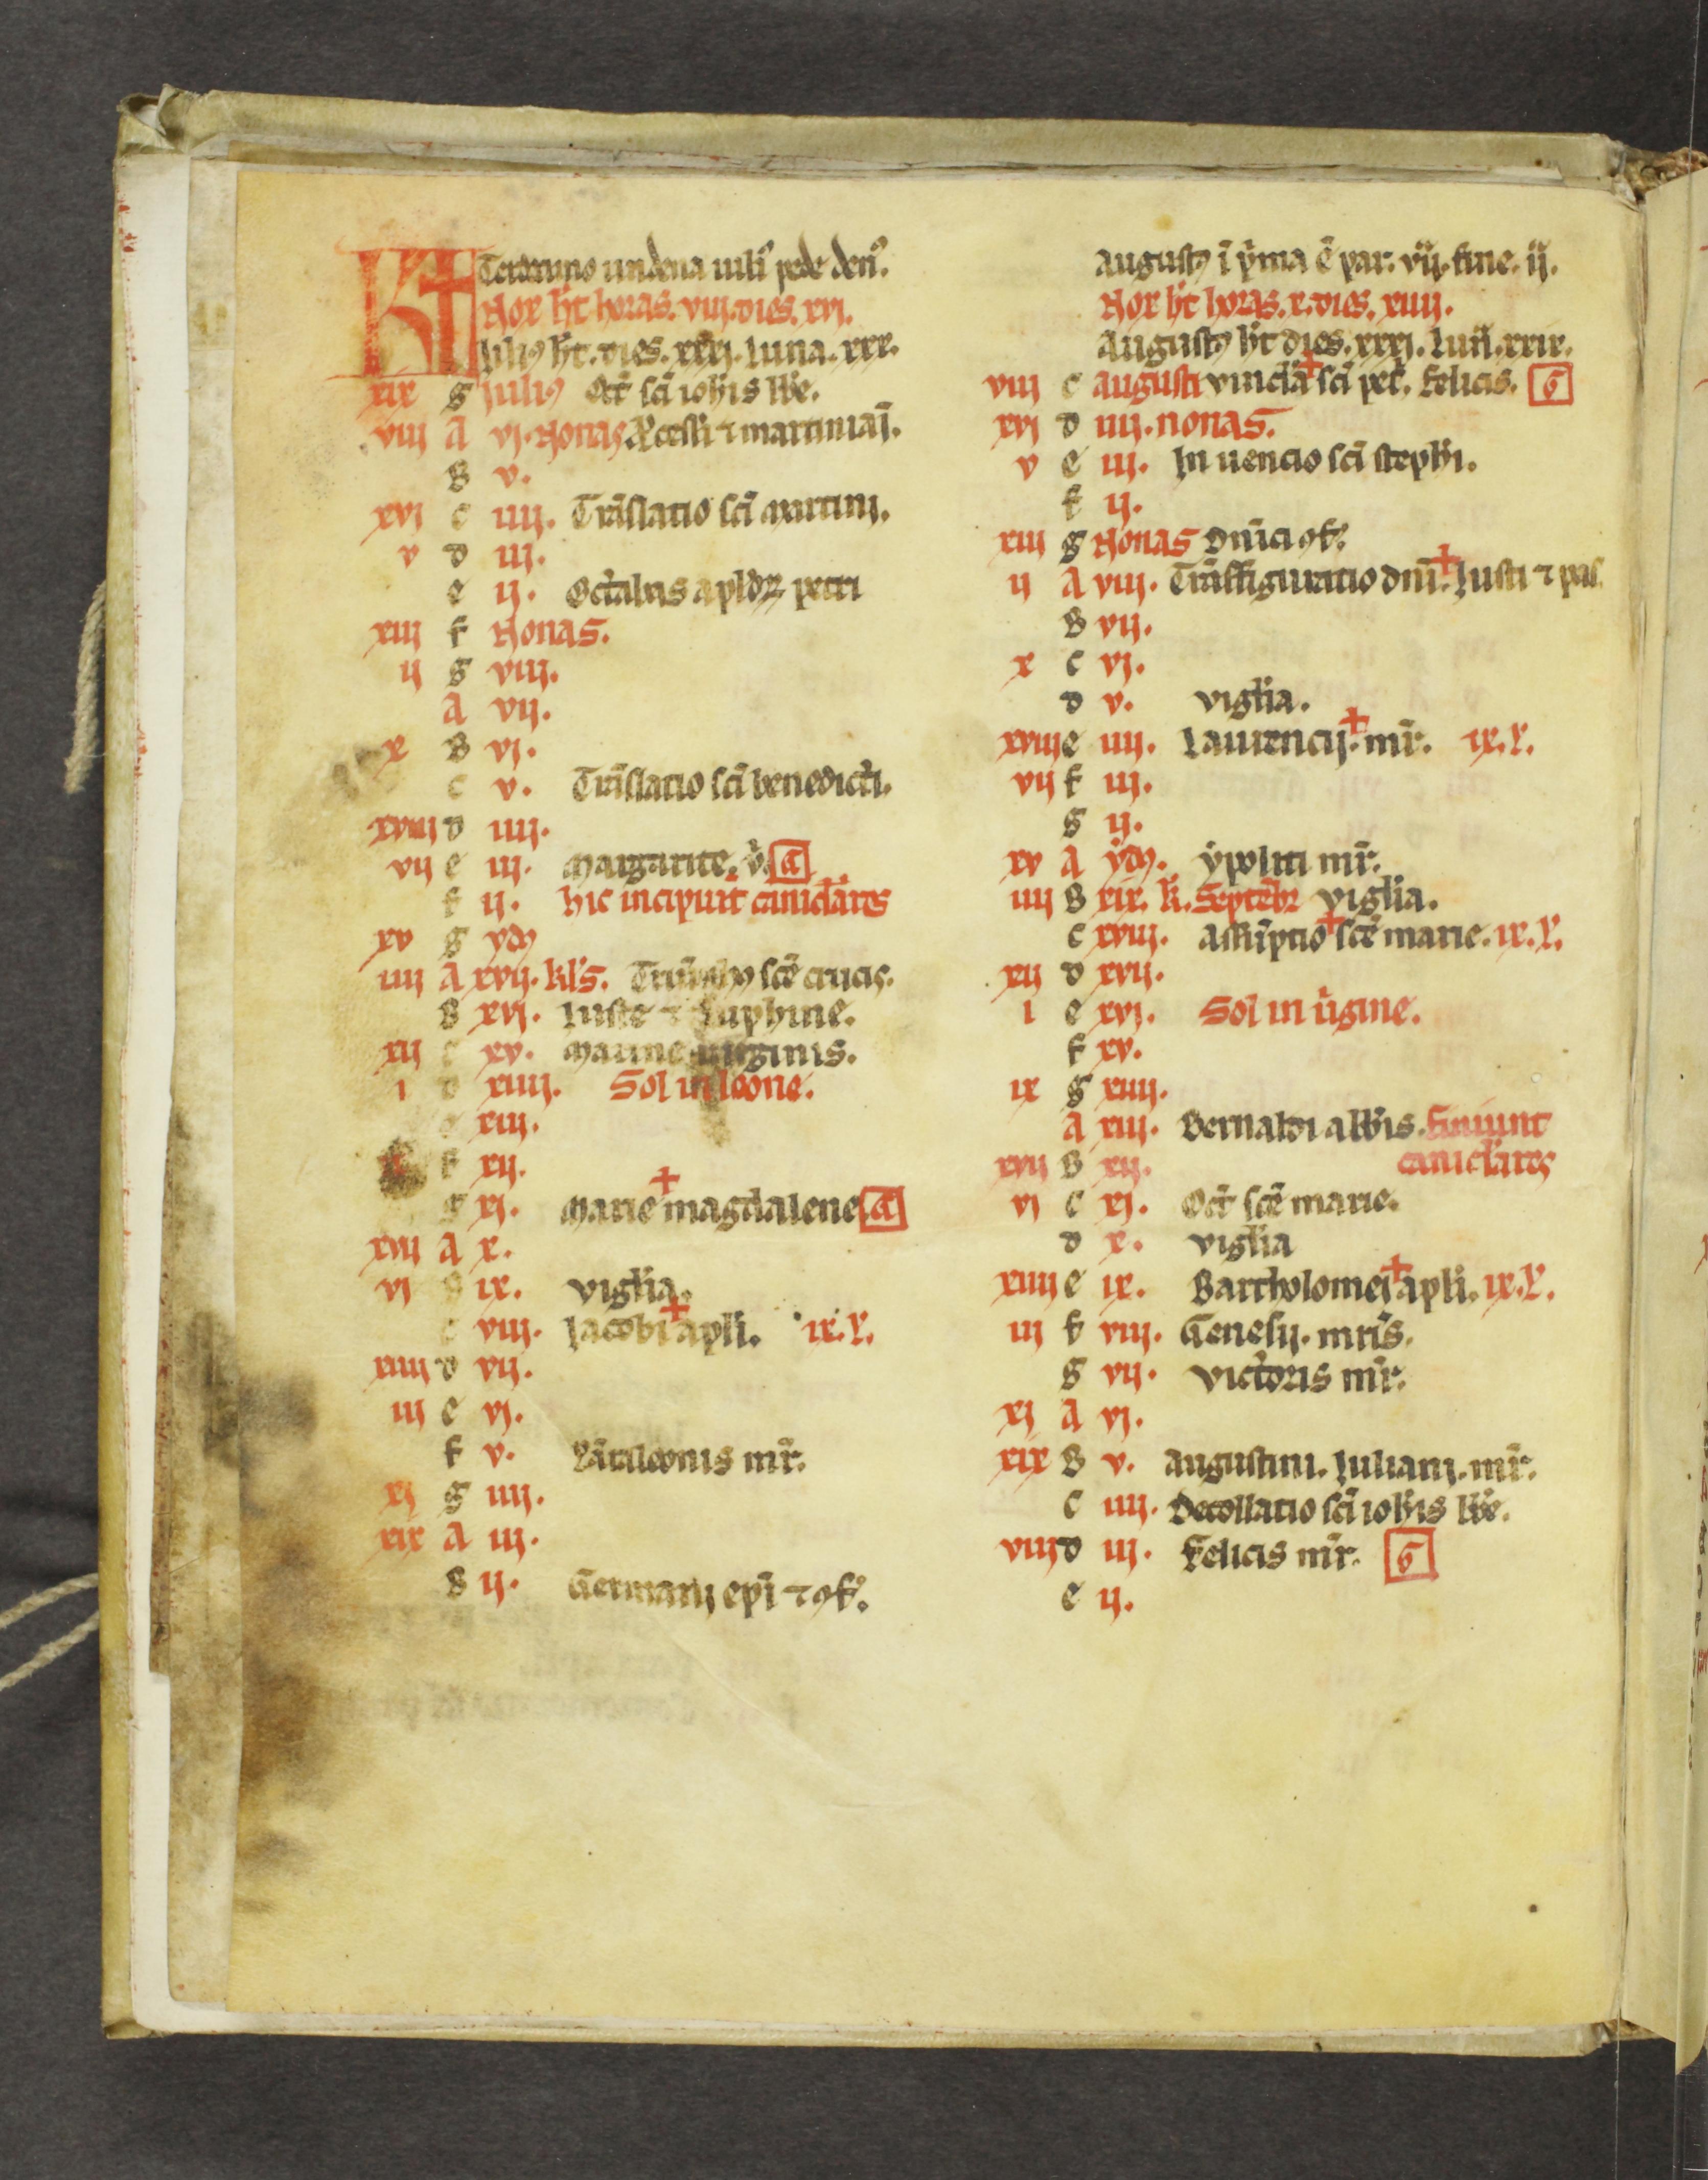 Kł Terdeamo undena iuliꝰ pede denꝰ.
Nox h̄t horas. viij. dies. xvj.
Juliꝰ h̄t. dies. xxxj. Luna. xxx.
xix g Juliꝰ Oct̄ sc̄i ioh̄is bb̄e.
viij A vj. Nonas ꝓcessi ⁊ martiniāi.
B v.
xvj c iiij. Trāslatio sc̄i martinj.
v d iij.
e ij. Octabas aplōꝝ petri
xiij f Nonas.
ij g viij.
A vij.
x B vj.
c v. Trāslatio sc̄i benedicti.
xviij d iiij.
vij e iij. Margarite. v̄. a
f ij. hic incipiūt caniclares
xv g ydꝰ
iiij A xvij. kl̄s. Triūphꝰ sc̄e crucis.
B xvj. Juste ⁊ Ruphine.
xij c xv. Marine uirginis.
i d xiiij. Sol in leone.
e xiij.
f xij.
g xj. Marie magdalene a
xvij A x.
vj B ix. vigl̄ia.
c viij. Jacobi apl̄i. ix. l̄.
xiiij d vij.
iij e vj.
f v. Pātaleonis mr̄.
xj g iiij.
xix A iij.
B ij. Germanj ep̄i ⁊ ꝯf̄.
Augustꝰ ī p̄ima ē par. vij. fine. ij.
Nox h̄t horas. x. dies. xiiij.
Augustꝰ h̄t dies. xxxj. Lun̄. xxix.
viij c augusti vincl̄a sc̄i pet̄. Felicis. G
xvj d iiij. nonas.
v e iij. Inuencio sc̄i steph̄i.
f ij.
xiij g Nonas Dn̄ici ꝯf̄.
ij A viij. Trāsfiguratio dn̄i. Justi ⁊ pas.
B vij.
x c vj.
d v. vigl̄ia.
xviij e iiij. Laurencij. mr̄. ix. l̄.
vij f iij.
g ij.
xv A ydꝰ. ypoliti mr̄.
iiij B xix. kł. Septēbr̄ vigl̄ia.
c xviij. Assūptio sc̄e marie. ix. l̄.
xij d xvij.
i e xvj. Sol in ūgine.
f xv.
ix g xiiij.
A xiij. Bernaldi abb̄is. finiunt
xvij B xij. canicl̄ares
vj c xj. Oct̄ sc̄e marie.
d x. vigl̄ia
xiiij e ix. Bartholomei apl̄i. ix. l̄.
iij f viij. Genesij. mr̄is.
g vij. victoris mr̄.
xj A vj.
xix B v. Augustini. Julianj. mr̄.
c iiij. Decollatio sc̄i ioh̄is bb̄e.
viij d iij. Felicis mr̄. G
e ij.